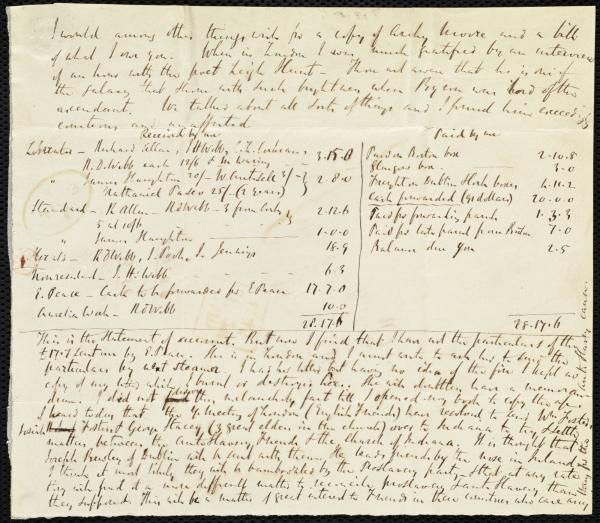 I would among other things wish for a copy of Archy Moore and a bill
of what I owe you. When in London I was much gratified by an interview
of an hour with the poet Leigh Hunt – He is one of
the that shone with such brightness when Byron was lord of the
ascendant. We talked about all sorts of things and I found him exceedingly
courteous and unaffected
Received by me
Paid by me
Liberator – Richard Allen, Webb,
3.15.0
R.D. Webb each 12/6 & M Waring
" James Haughton 20/– 3/–
2.8.0
Nathaniel 25/– (2 years)
Standard – R Allen – R D Webb – 3 from Cork
2.12.6
5 at 10/6
" James Haughton
1.0.0
– R D Webb, J. Jennings
18.9
Nonresistant – J. H. Webb
6.3
E. Pease – Cash to be forwarded for E Pease
17.7.0
works – R D Webb
10.0
28.17.6
Paid on Boston box
2.10.8
Glasgow box
3.0
Freight on Dublin & Cork boxes
4.11.2
Cash forwarded (91 dollars)
20.0.0
Paid for forwarding parcels
1.3.3
Paid for late parcel from Boston
7.0
Balance due you
2.5
28.17.6
This is the statement of account. But now I find that I have not the particulars of the
£17.7 sent me by E. Pease. She is in London and I must write to ask her to send the
particulars by next steamer. I had her letter but having no idea of the fire I kept no
copy of my letter which I burned or destroyed here. She will doubtless have a memoran-
dum. I did not this melancholy fact till I opened my book to copy the
I heard today that the Y. Meeting of London (English Friends) have resolved to send Wm Forster,
Josiah Forster & George Stacey (3 great elders in the church) over to Indiana to try settle
matters between the Anti Slavery Friends & the Church of Indiana. It is thought that
Joseph of Dublin will be sent with them. He leads Friends by the nose in Ireland.
I think it most likely they will be bamboozled by the Proslavery party, & that at any rate
they will find it a more difficult matter to reconcile proslavery & anti slavery than
they suppose. This will be a matter of great interest to Friends in these countries who care any
thing for the Anti Slavery cause.